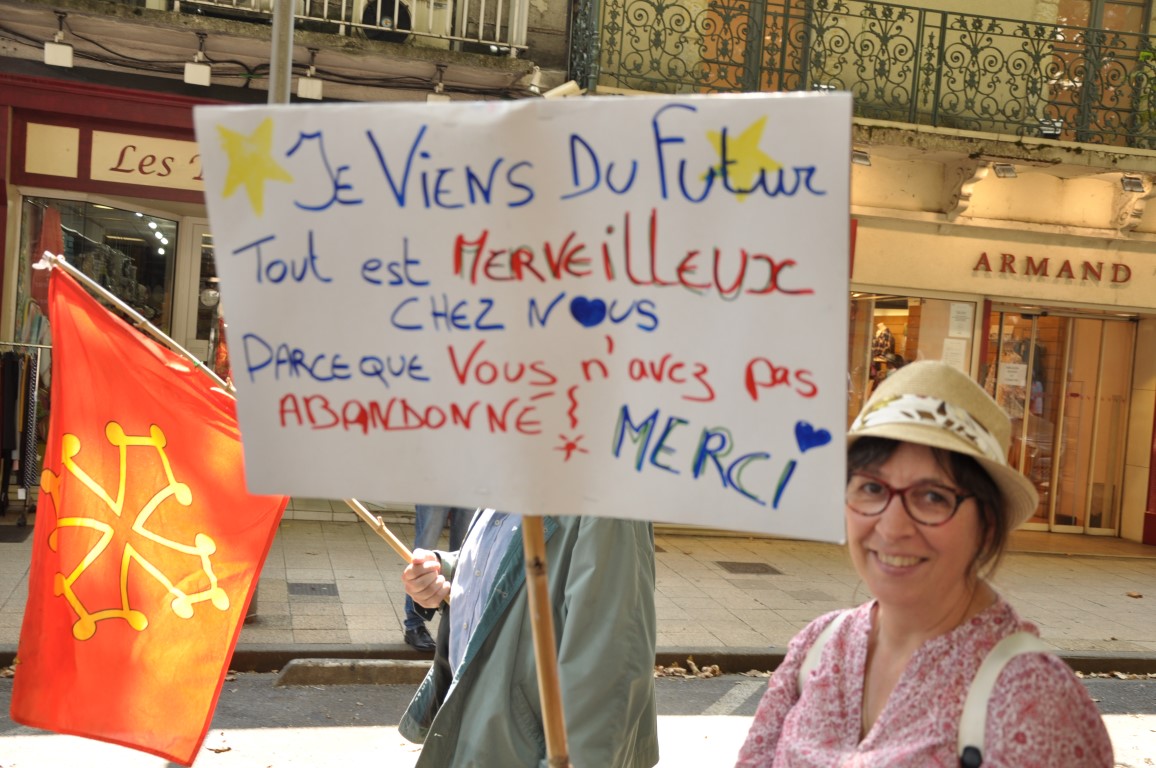 Les
ARMAND
JE VIENS DU FUTUR
TOUT est MERVEILLEUX
CHEZ NOUS
PARCE QUE VOUS n'avez pas
ABANDONNÉ !
MERCI